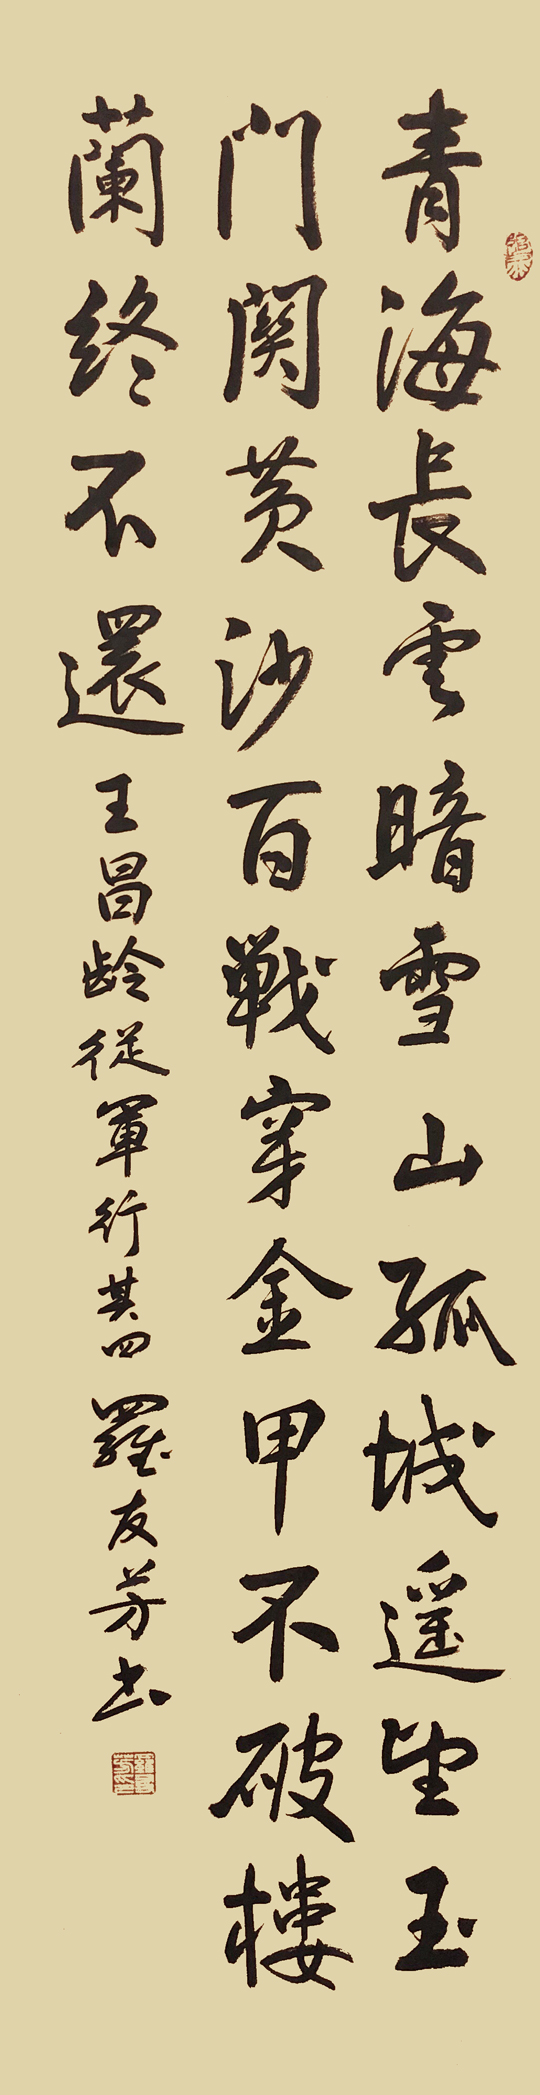 青海長雲暗雪山孤城遥望玉
门関黄沙百戦穿金甲不破樓
蘭終不還 王昌龄從軍行其四 羅友芳书